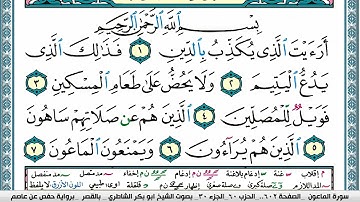 بِسْمِ ٱللَّهِ ٱلرَّحْمَٰنِ ٱلرَّحِيمِ
أَرَءَيْتَ ٱلَّذِى يُكَذِّبُ بِٱلدِّينِ ١ فَذَٰلِكَ ٱلَّذِى
يَدُعُّ ٱلْيَتِيمَ ٢ وَلَا يَحُضُّ عَلَىٰ طَعَامِ ٱلْمِسْكِينِ ٣
فَوَيْلٌ لِّلْمُصَلِّينَ ٤ ٱلَّذِينَ هُمْ عَن صَلَاتِهِمْ سَاهُونَ
٥ ٱلَّذِينَ هُمْ يُرَآءُونَ ٦ وَيَمْنَعُونَ ٱلْمَاعُونَ ٧
سورة الماعون . الصفحة ٦٠٢ . الحزب ٦٠ الجزء ٣٠ . بصوت الشيخ ابو بكر الشاطري . بالقصر . برواية حفص عن عاصم